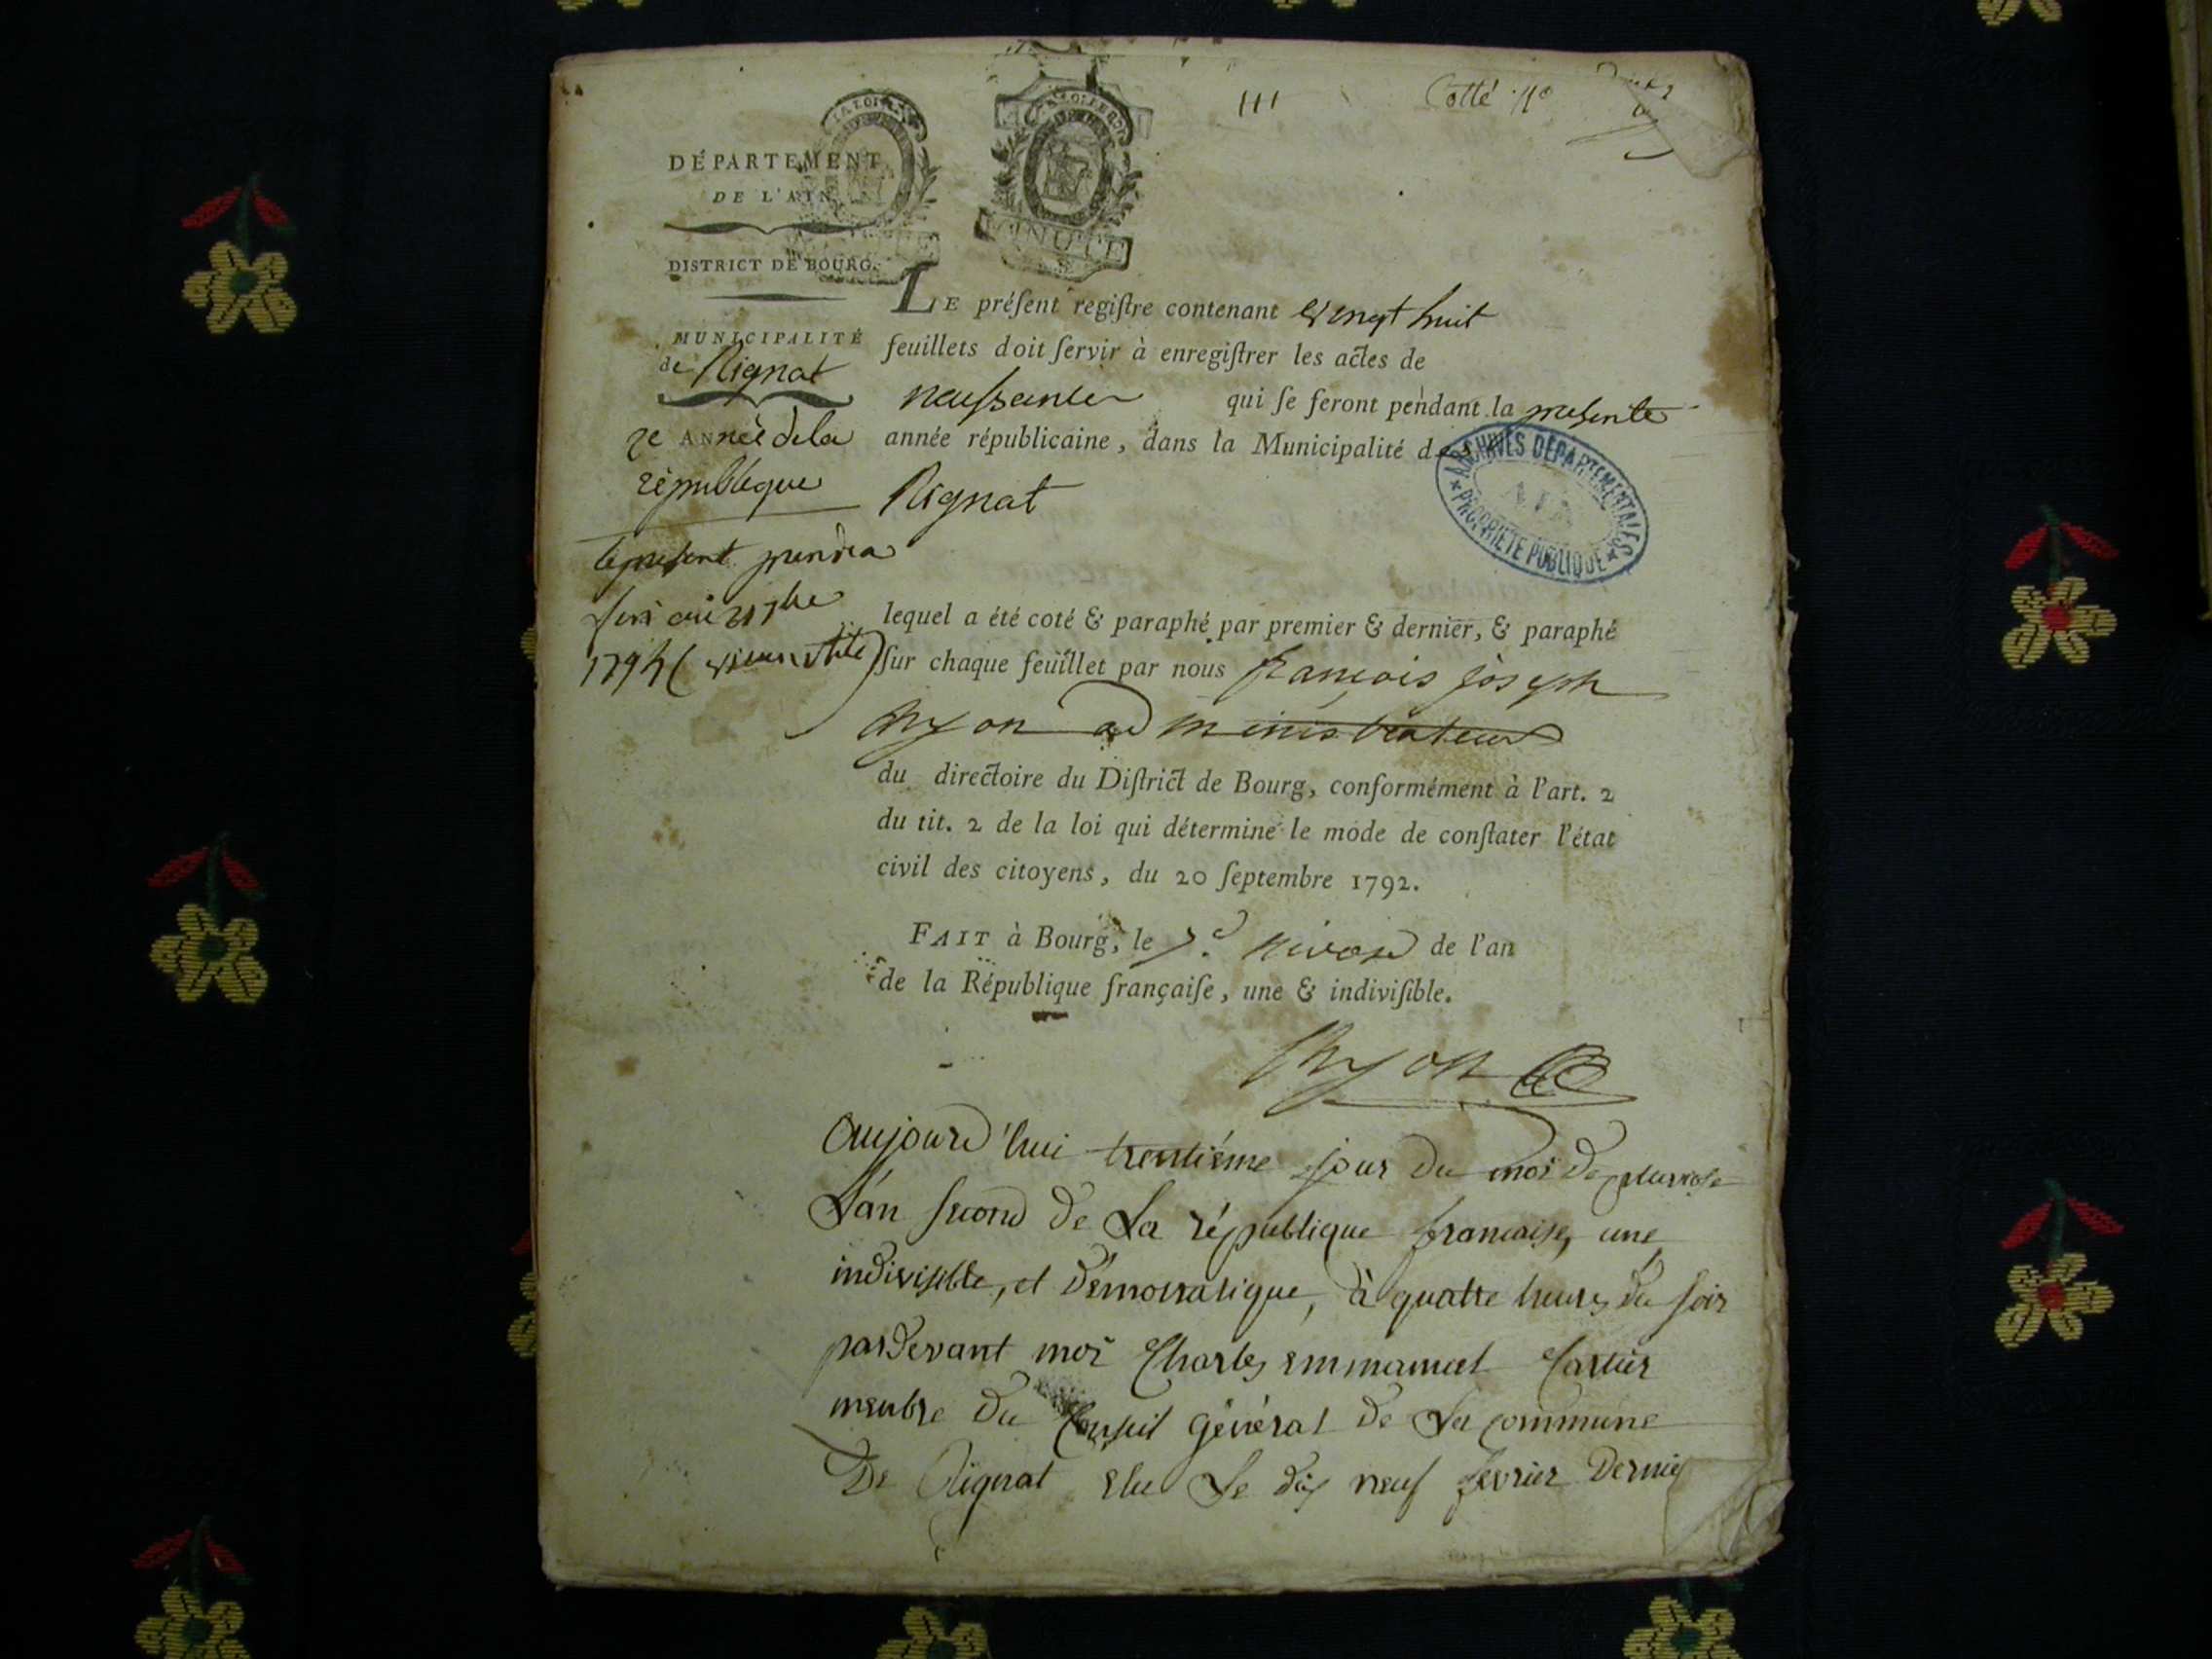 Cotté 1o
LA LOI
LA LOI LE ROI
DÉPARTEMENT
DE L'AIN.
DISTRICT DE BOURG.
MUNICIPALITÉ
de Rignat
2e ANnée dela
république
le present prendra
fin au 21 7bre
1794 (vieux stile)
LE préſent regiſtre contenant vingt huit
feuillets doit ſervir à enregiſtrer les actes de
naissance qui ſe feront pendant la presente
année républicaine, dans la Municipalité de
Rignat
ARCHIVES DÉPARTEMENTALES
AIN
PROPRIÉTÉ PUBLIQUE
lequel a été coté & paraphé par premier & dernier, & paraphé
ſur chaque feuillet par nous françois joseph
administrateur
du directoire du Diſtrict de Bourg, conformément à l'art. 2
du tit. 2 de la loi qui détermine le mode de conſtater l'état
civil des citoyens, du 20 ſeptembre 1792.
FAIT à Bourg, le nivose de l'an
de la République françaiſe, une & indiviſible.
aujourd'hui trentiéme jour du moi de pluviose
L'an second de La république francaise, une
indivisible, et démocratique, à quatre heures du soir
pardevant moi Charles emmanuel Cartier
menbre du Conseil général de La commune
De Rignat elu Le dix neuf fevrier Dernier